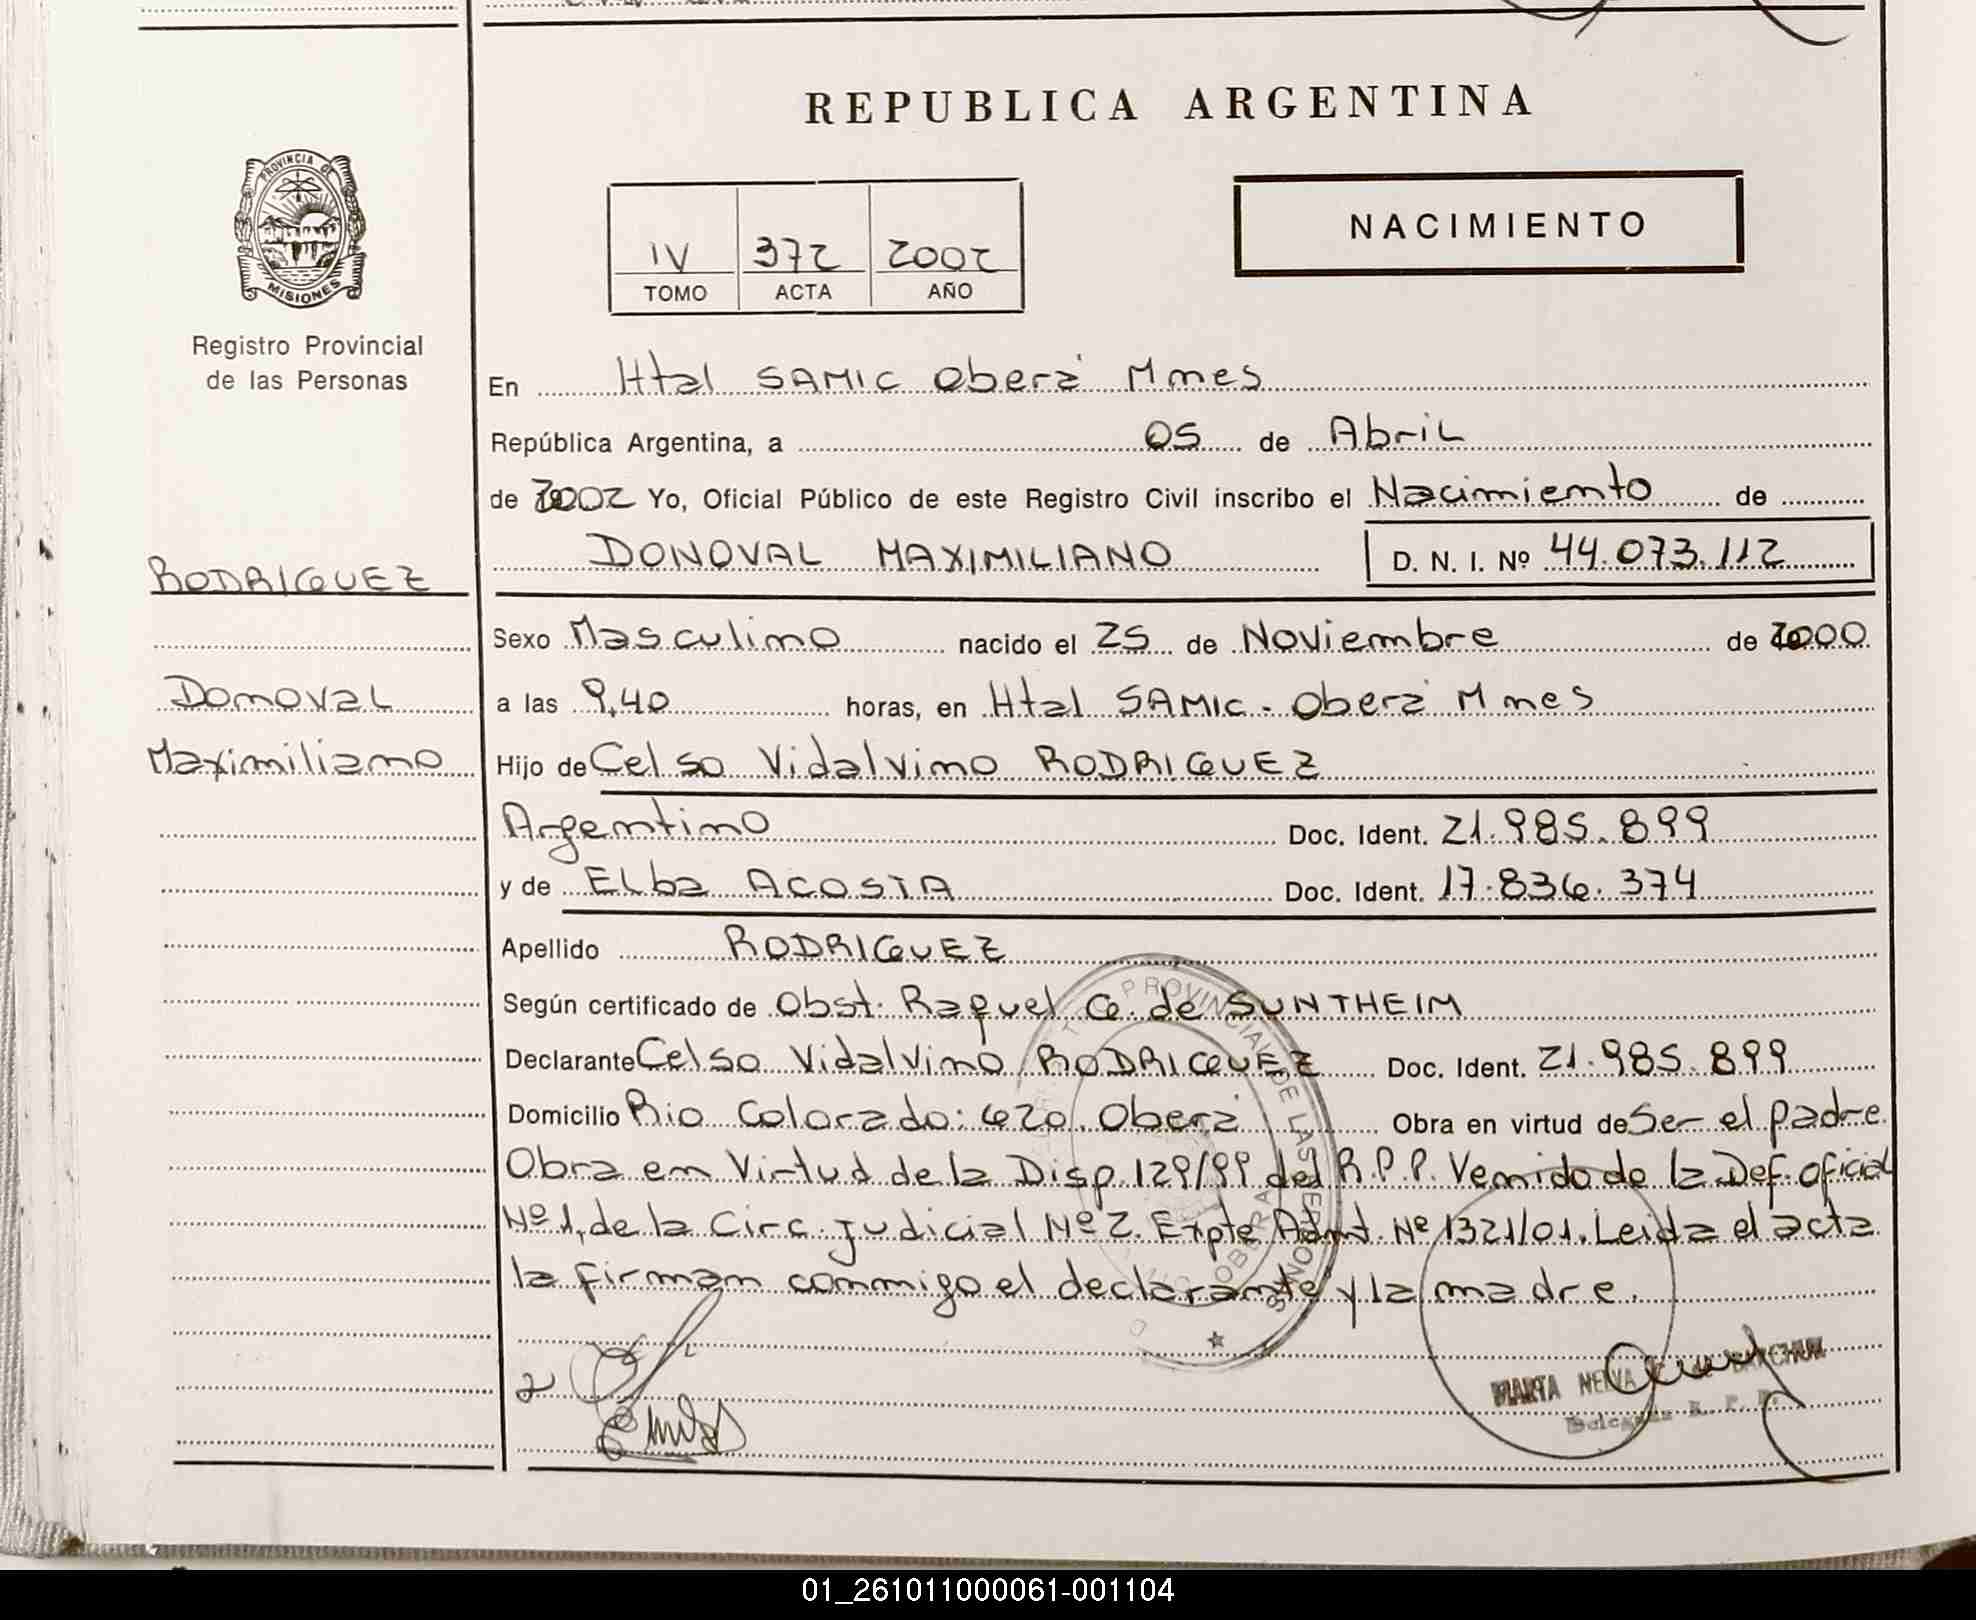 REPUBLICA ARGENTINA
PROVINCIA DE
MISIONES
Registro Provincial
de las Personas
IV 372 2002
TOMO ACTA AÑO
NACIMIENTO
En Htal SAMIC Oberá Mnes
República Argentina, a 05 de Abril
de 2002 Yo, Oficial Público de este Registro Civil inscribo el Nacimiento de
DONOVAL MAXIMILIANO D. N. I. Nº 44.073.112
RODRIGUEZ
Sexo Masculino nacido el 25 de Noviembre de 2000
Donoval
a las 9,40 horas, en Htal SAMIC - Oberá Mnes
Maximiliano
Hijo de Celso Vidalvino RODRIGUEZ
Argentino Doc. Ident. 21.985.899
y de Elba ACOSTA Doc. Ident. 17.836.374
Apellido RODRIGUEZ
Según certificado de Obst. Raquel G. de SUNTHEIM
Declarante Celso Vidalvino RODRIGUEZ Doc. Ident. 21.985.899
Domicilio Rio Colorado: 620. Oberá Obra en virtud de Ser el padre.
Obra en Virtud de la Disp. 129/99 del R.P.P. Venido de la Def. oficial
Nº 1, de la Circ. judicial Nº 2. Expte Admt. Nº 1321/01. Leida el acta
la firman conmigo el declarante y la madre.
PROVINCIAL DE LAS PERSONAS
OBERA
MARTA NELVA
Delegada R. P. P.
01_261011000061-001104